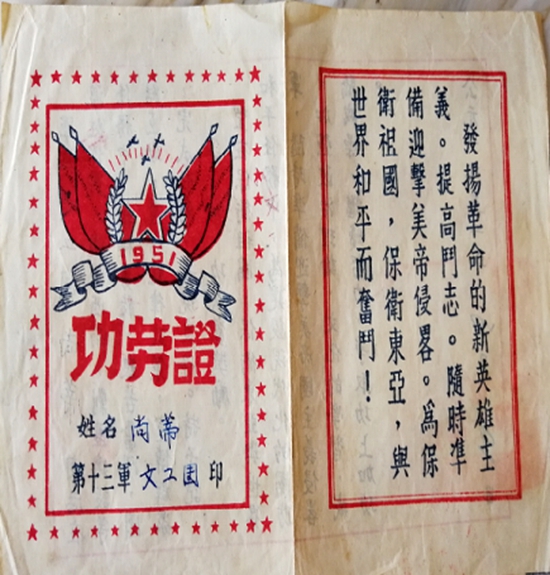 1951
功劳證
姓名 尚蒂
第十三軍 文工团 印
發揚革命的新英雄主
義。提高鬥志。隨時準
備迎擊美帝侵畧。爲保
衛祖國，保衛東亞，與
世界和平而奮鬥！